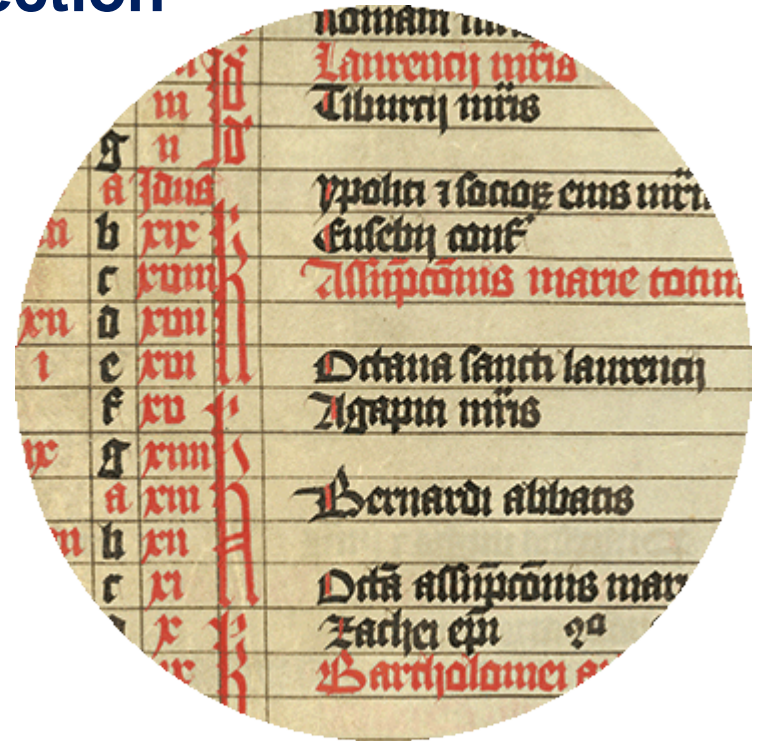 ection
Romani
Laurencij mr̄is
iii Tiburcij mr̄is
g ii Id'
a Idus ypoliti ⁊ socioꝝ eius mr̄
b xix Eusebij conf'
c xviii Assūpcōnis marie
d xvii
i e xvi Octaua sancti laurencij
f xv Agapiti mr̄is
ix g xiiii
a xiii Bernardi abbatis
b xii
c xi Octā assūpcōnis mar
x Zachei ep̄i
Bartholomei